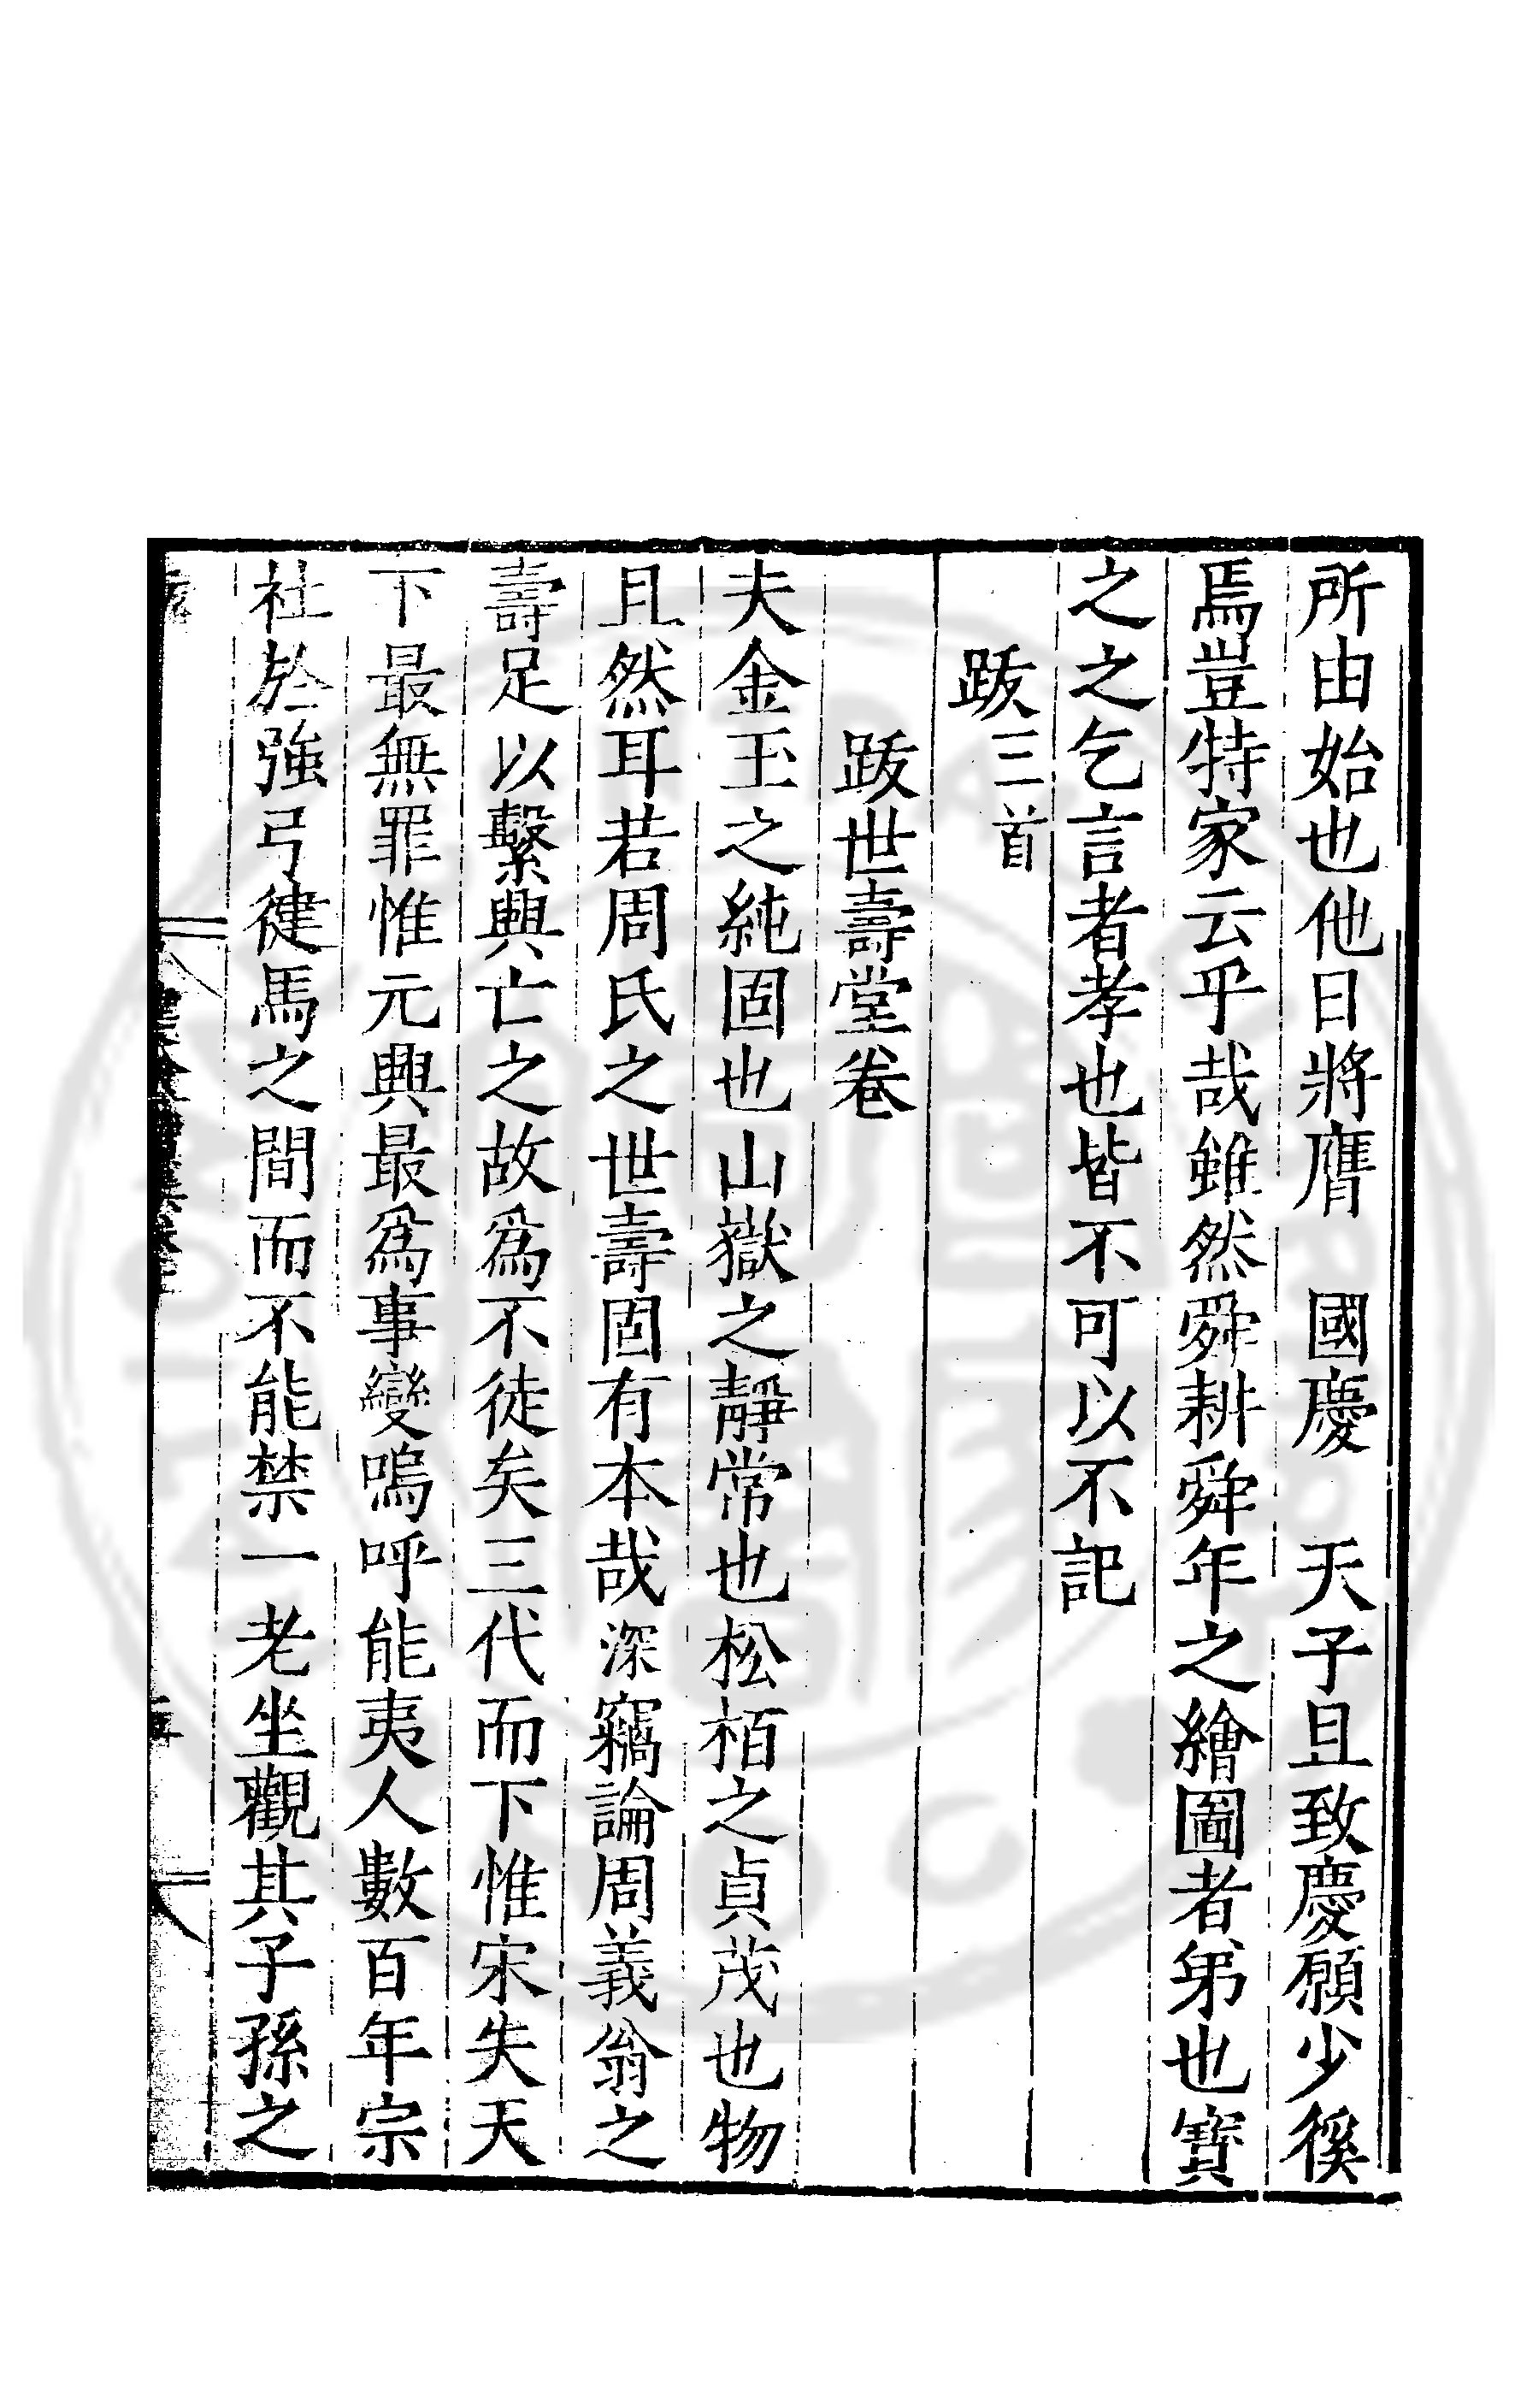 所由始也他日將膺　國慶　天子且致慶願少徯
焉豈特家云乎哉雖然舜耕舜年之繪圖者弟也寶
之之乞言者孝也皆不可以不記
跋三首
跋世壽堂卷
夫金玉之純固也山嶽之靜常也松栢之貞茂也物
且然耳若周氏之世壽固有本哉深竊論周義翁之
壽足以繫興亡之故爲不徒矣三代而下惟宋失天
下最無罪惟元興最爲事變嗚呼能夷人數百年宗
社於強弓徤馬之間而不能禁一老坐觀其子孫之